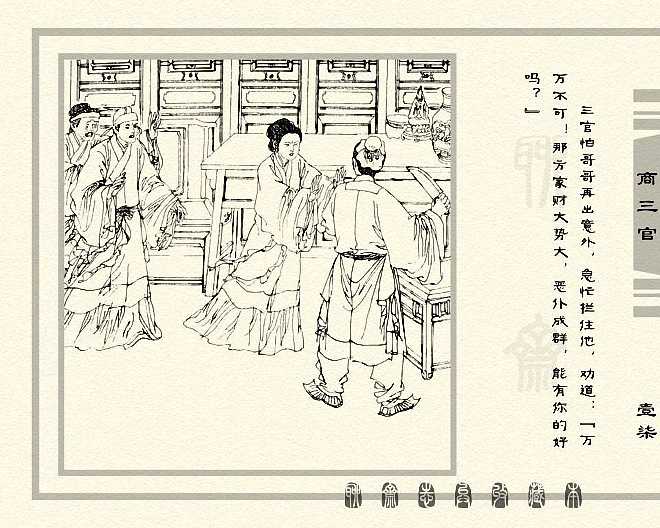 三官怕哥哥再出意外，急忙拦住他，劝道：“万
万不可！那方家财大势大，恶仆成群，能有你的好
吗？”
商三官
壹柒